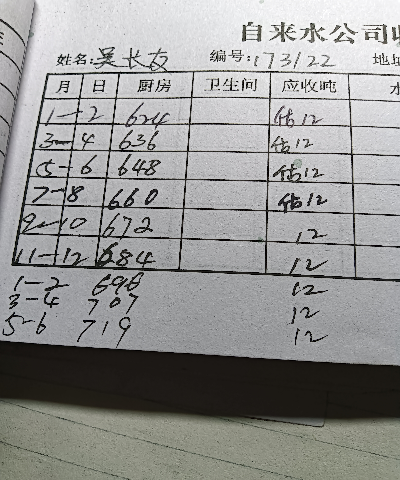 自来水公司
姓名:吴长友 编号:173122 地
月 日 厨房 卫生间 应收吨 水
1-2 624 估12
3-4 636 估12
5-6 648 估12
7-8 660 估12
9-10 672 12
11-12 684 12
1-2 696 12
3-4 707 12
5-6 719 12